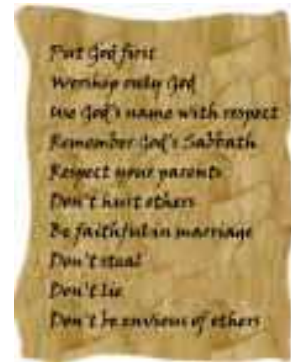 Put God first
Worship only God
Use God's name with respect
Remember God's Sabbath
Respect your parents
Don't hurt others
Be faithful in marriage
Don't steal
Don't lie
Don't be envious of others